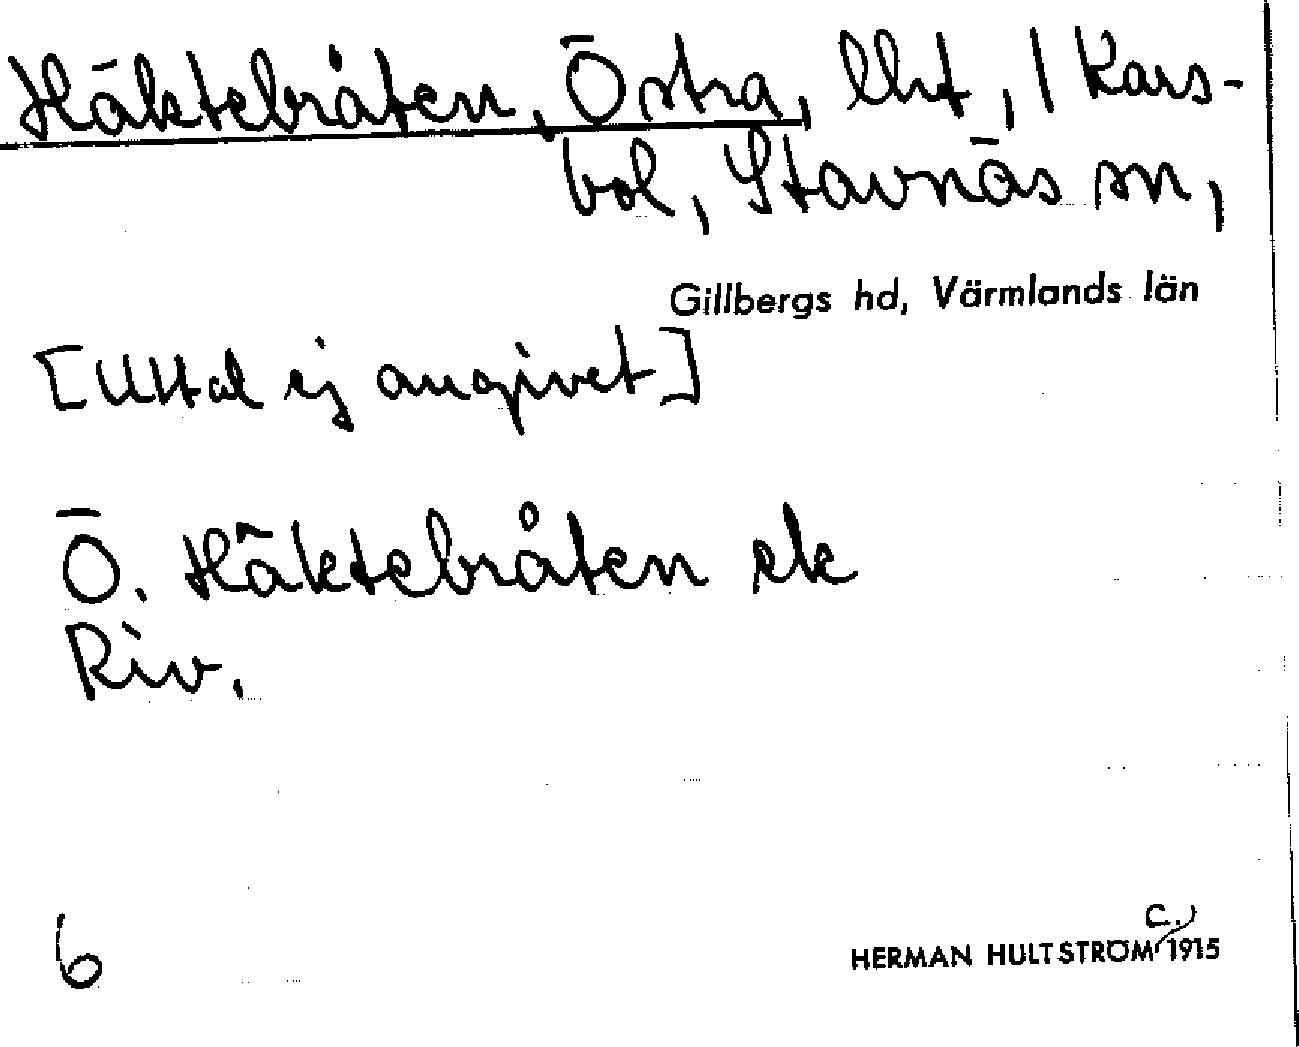 Häktebråten, Östra, lht, 1 Kars-
bol, Stavnäs sn,
Gillbergs hd, Värmlands län
[Uttal ej angivet]
Ö. Häktebråten ek
Riv.
6
c.
HERMAN HULTSTRÖM 1915